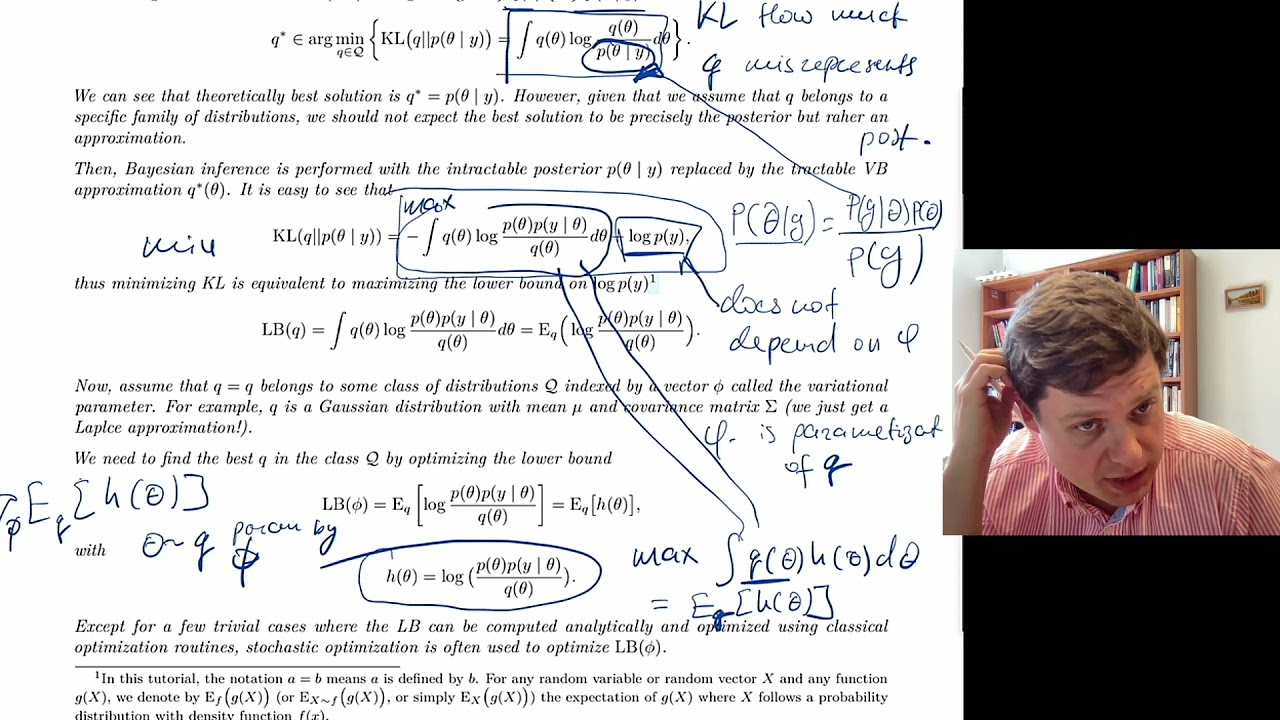 q* ∈ arg min_{q∈Q} { KL(q||p(θ | y)) = ∫ q(θ) log q(θ)/p(θ | y) dθ }.
KL how much
q misrepresents
post.
We can see that theoretically best solution is q* = p(θ | y). However, given that we assume that q belongs to a
specific family of distributions, we should not expect the best solution to be precisely the posterior but raher an
approximation.
Then, Bayesian inference is performed with the intractable posterior p(θ | y) replaced by the tractable VB
approximation q*(θ). It is easy to see that
max
min
KL(q||p(θ | y)) = − ∫ q(θ) log p(θ)p(y | θ)/q(θ) dθ + log p(y),
P(θ|y) = P(y|θ)P(θ)/P(y)
thus minimizing KL is equivalent to maximizing the lower bound on log p(y)¹
does not
depend on φ
LB(q) = ∫ q(θ) log p(θ)p(y | θ)/q(θ) dθ = E_q( log p(θ)p(y | θ)/q(θ) ).
Now, assume that q = q belongs to some class of distributions Q indexed by a vector ϕ called the variational
parameter. For example, q is a Gaussian distribution with mean μ and covariance matrix Σ (we just get a
Laplce approximation!).
φ is parametizat
of q
We need to find the best q in the class Q by optimizing the lower bound
LB(ϕ) = E_q [ log p(θ)p(y | θ)/q(θ) ] = E_q[h(θ)],
E_q [h(θ)]
θ ~ q param by
ϕ
with
h(θ) = log ( p(θ)p(y | θ)/q(θ) ).
max ∫ q(θ) h(θ) dθ
= E_q [h(θ)]
Except for a few trivial cases where the LB can be computed analytically and optimized using classical
optimization routines, stochastic optimization is often used to optimize LB(ϕ).
¹In this tutorial, the notation a = b means a is defined by b. For any random variable or random vector X and any function
g(X), we denote by E_f(g(X)) (or E_{X∼f}(g(X)), or simply E_X(g(X))) the expectation of g(X) where X follows a probability
distribution with density function f(x).